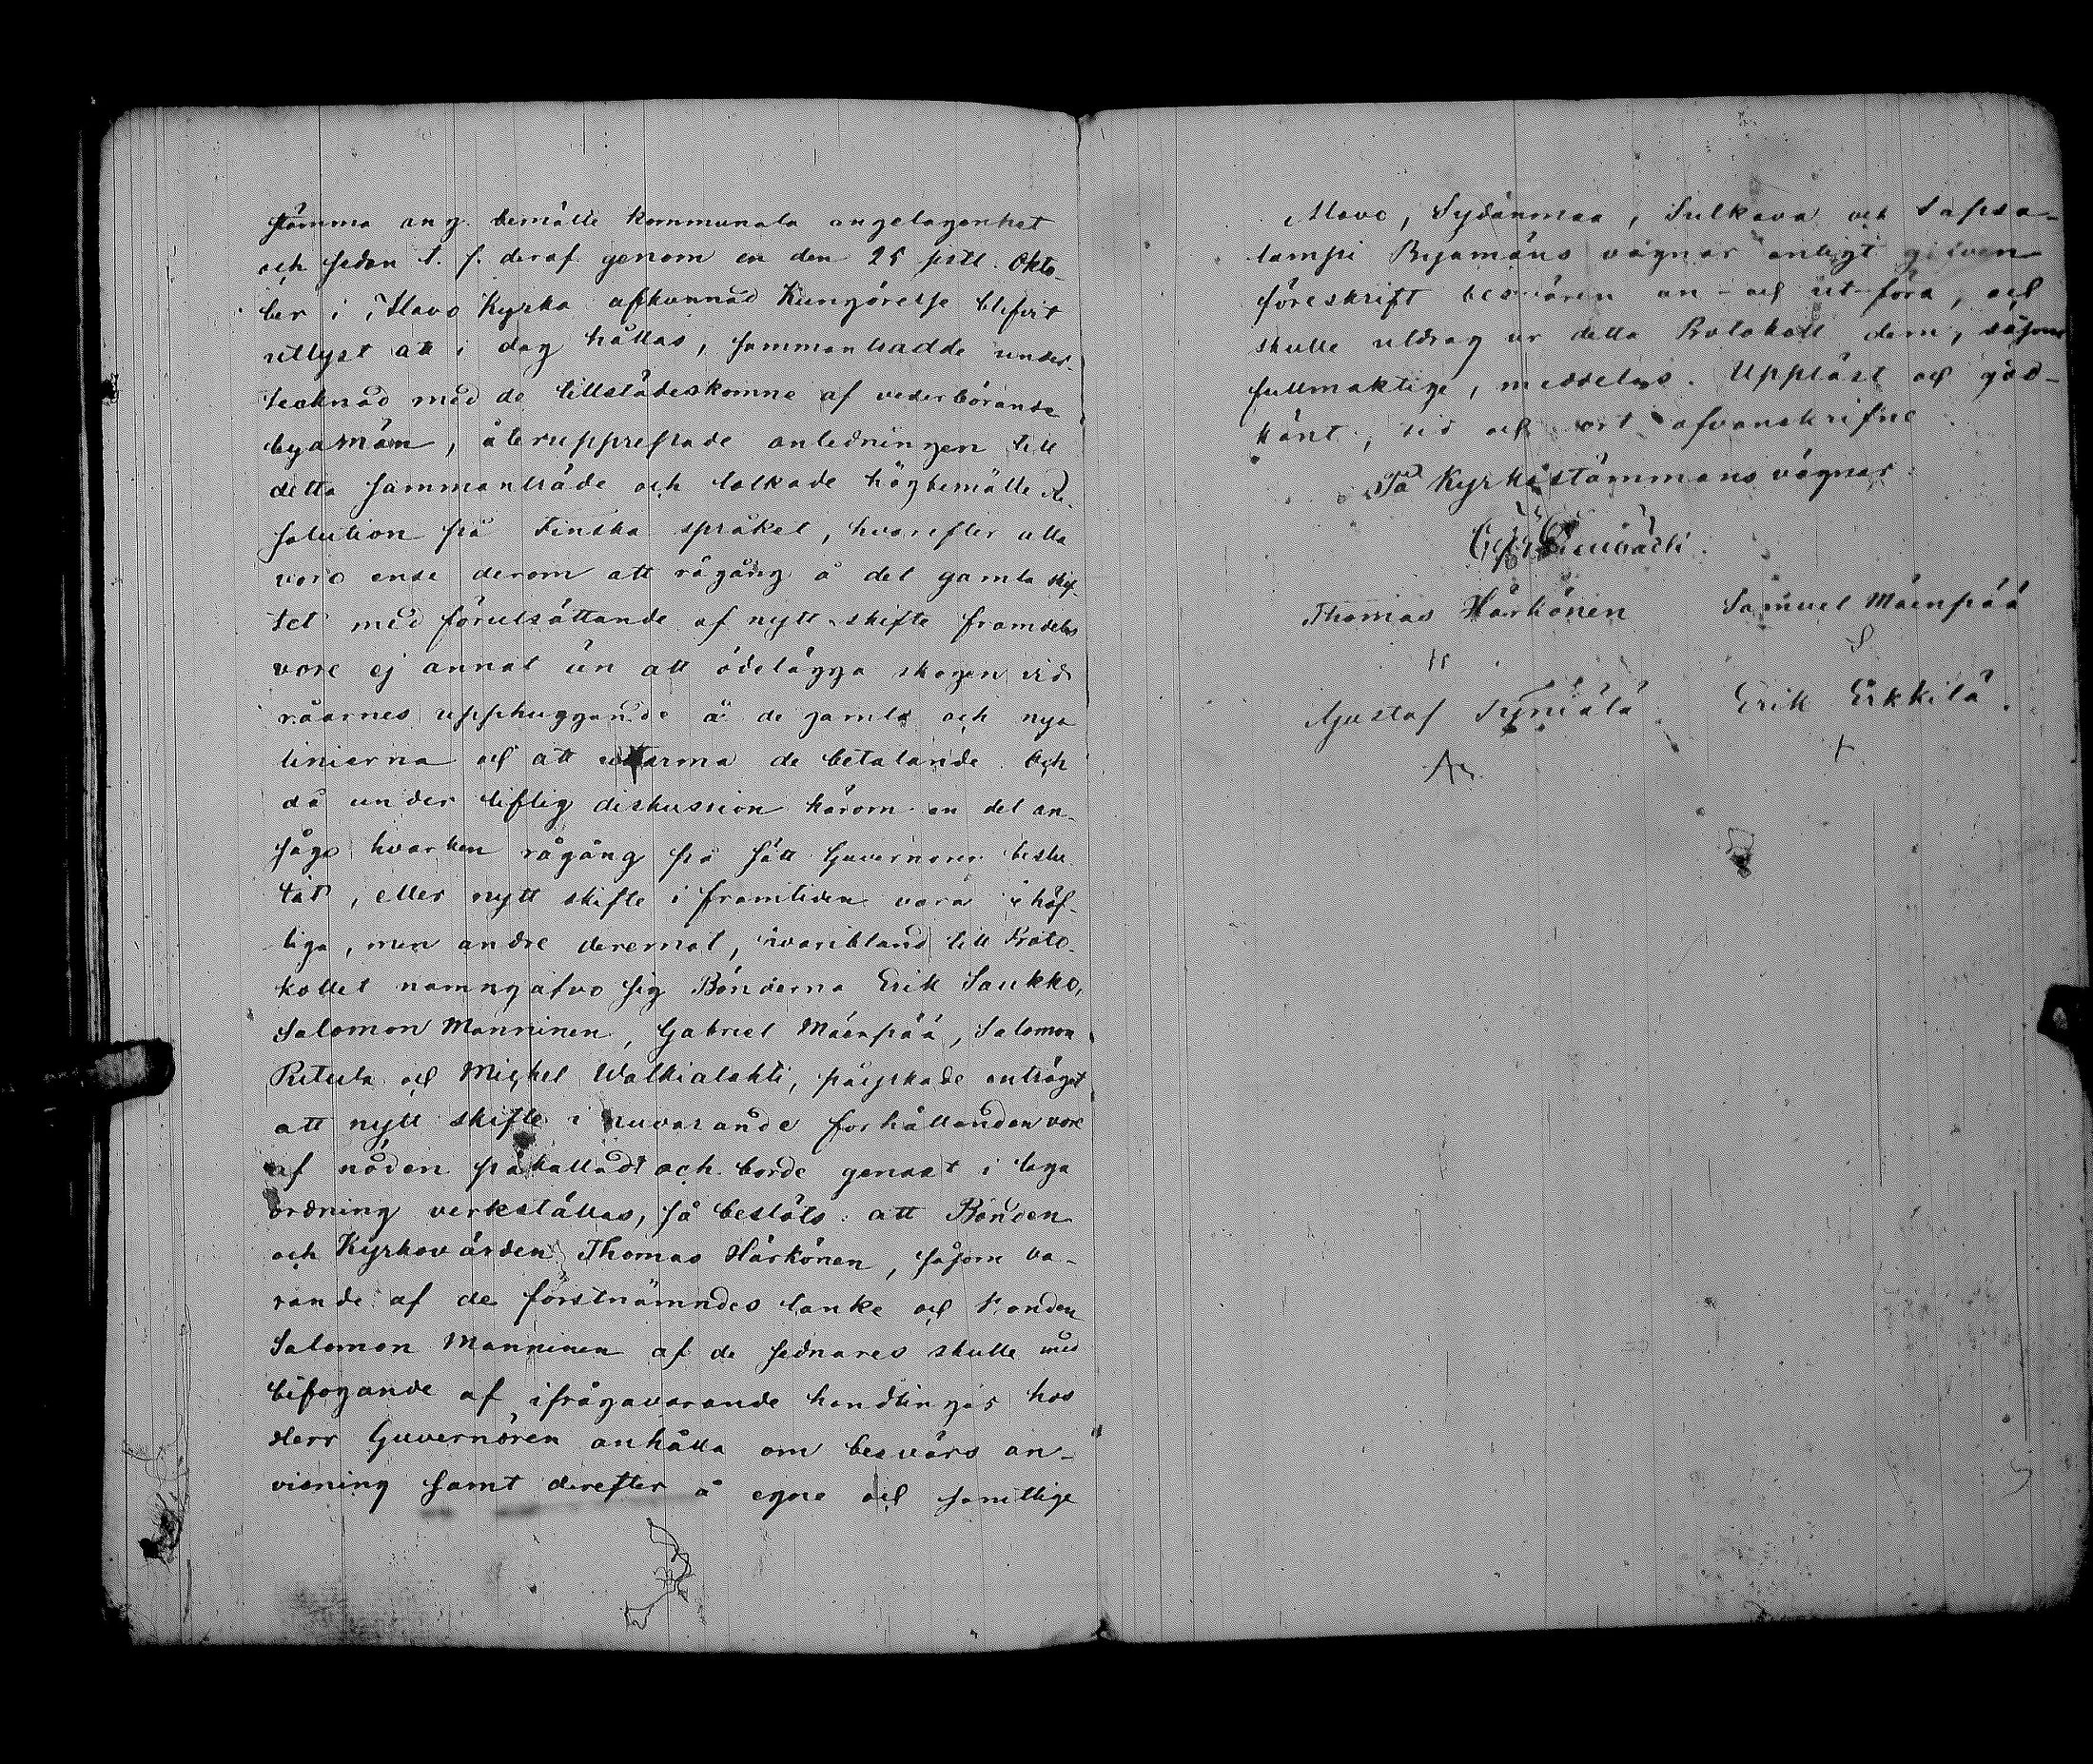 stämma ang. bemälte kommunala angelägenhet
och sedan t. f. deraf genom en den 25 sistl. Okto-
ber i Alavo Kyrka afkunnad Kungörelse blifvit
utlyst att i dag hållas, sammanträdde under-
tecknad med de tillstädeskomne af vederbörande
byamän, återupprepade anledningen till
detta sammanträde och tolkade högbemälte Re-
solution på Finska språket, hvarefter alla
voro ense derom att rågång å det gamla skif-
tet med förutsättande af nytt skifte framdeles
vore ej annat än att ödelägga skogen vid
råarnes upphuggande å de gamla och nya
linierna och att utarma de betalande. Och
då under liflig diskussion härom en del an-
sågo hvarken rågång på sätt Guvernören beslu-
tat, eller nytt skifte i framtiden vara behöf-
liga, men andre deremot, hvaribland till Proto-
kollet namngåfvo sig Bönderna Erik Saukko,
Salomon Manninen, Gabriel Mäenpää, Salomon
Ritula och Michel Walkialahti, påyrkade enträget
att nytt skifte i nuvarande förhållanden vore
af nöden påkalladt och borde genast i laga
ordning verkställas, så beslöts att Bonden
och Kyrkovärden Thomas Härkönen, såsom va-
rande af de förstnämndes tanke och Bonden
Salomon Manninen af de sednares skulle med
bifogande af ifrågavarande handlingar hos
Herr Guvernören anhålla om besvärs an-
visning samt derefter å egne och samtlige
Alavo, Sydänmaa, Sulkava och Sapsa-
lampi Byamäns vägnar enligt gifven
föreskrift besvären an- och utföra, och
skulle utdrag ur detta Protokoll dem, såsom
fullmäktige, meddelas. Uppläst och god-
känt, tid och ort ofvanskrifne
På Kyrkostämmans vägnar:
Thomas Härkönen Samuel Mäenpää
Gustaf Syniälä Erik Erkkilä.